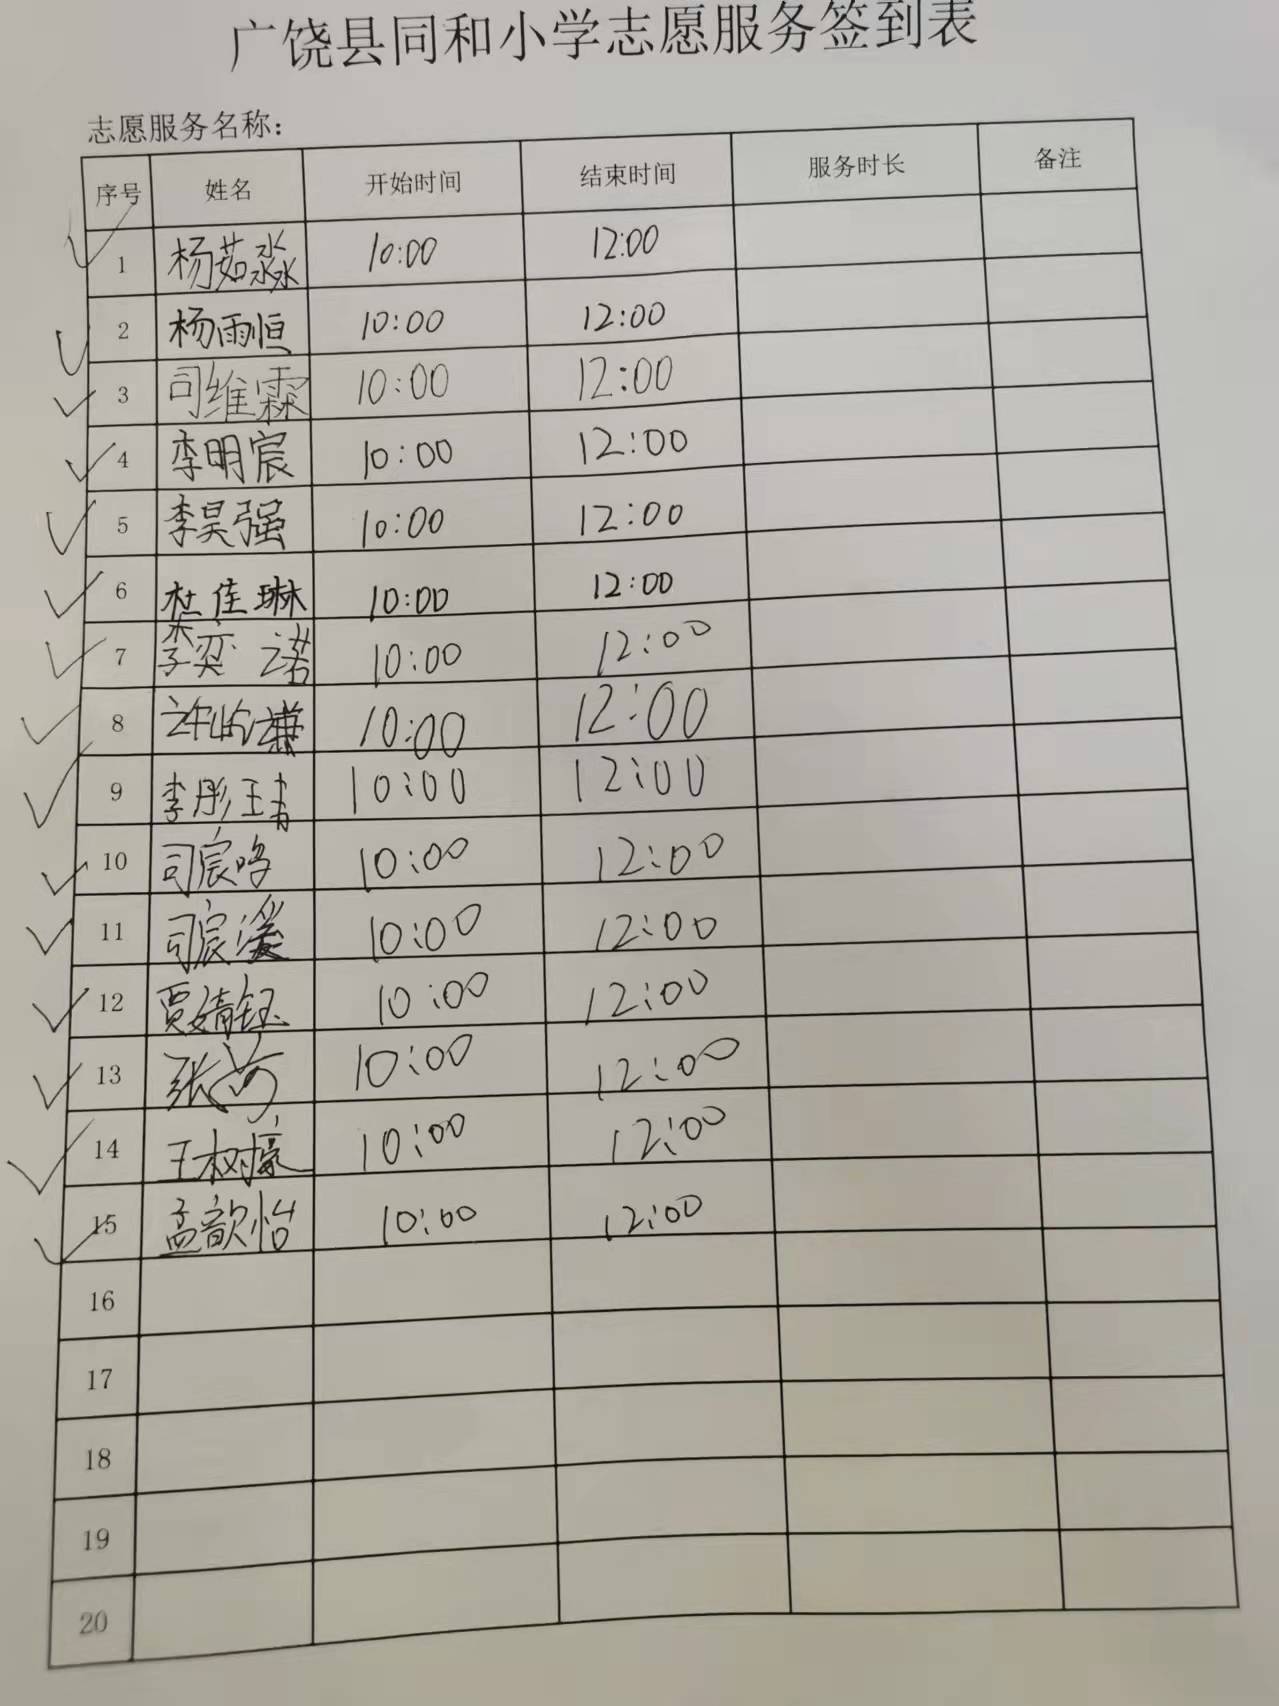 广饶县同和小学志愿服务签到表
志愿服务名称：
序号 姓名 开始时间 结束时间 服务时长 备注
1 杨茹淼 10:00 12:00
2 杨雨恒 10:00 12:00
3 司维霖 10:00 12:00
4 李明宸 10:00 12:00
5 李昊强 10:00 12:00
6 杜佳琳 10:00 12:00
7 李奕诺 10:00 12:00
8 许 10:00 12:00
9 李彤婧 10:00 12:00
10 司宸 10:00 12:00
11 司宸 10:00 12:00
12 贾婧钰 10:00 12:00
13 张 10:00 12:00
14 王树 10:00 12:00
15 孟歆怡 10:00 12:00
16
17
18
19
20